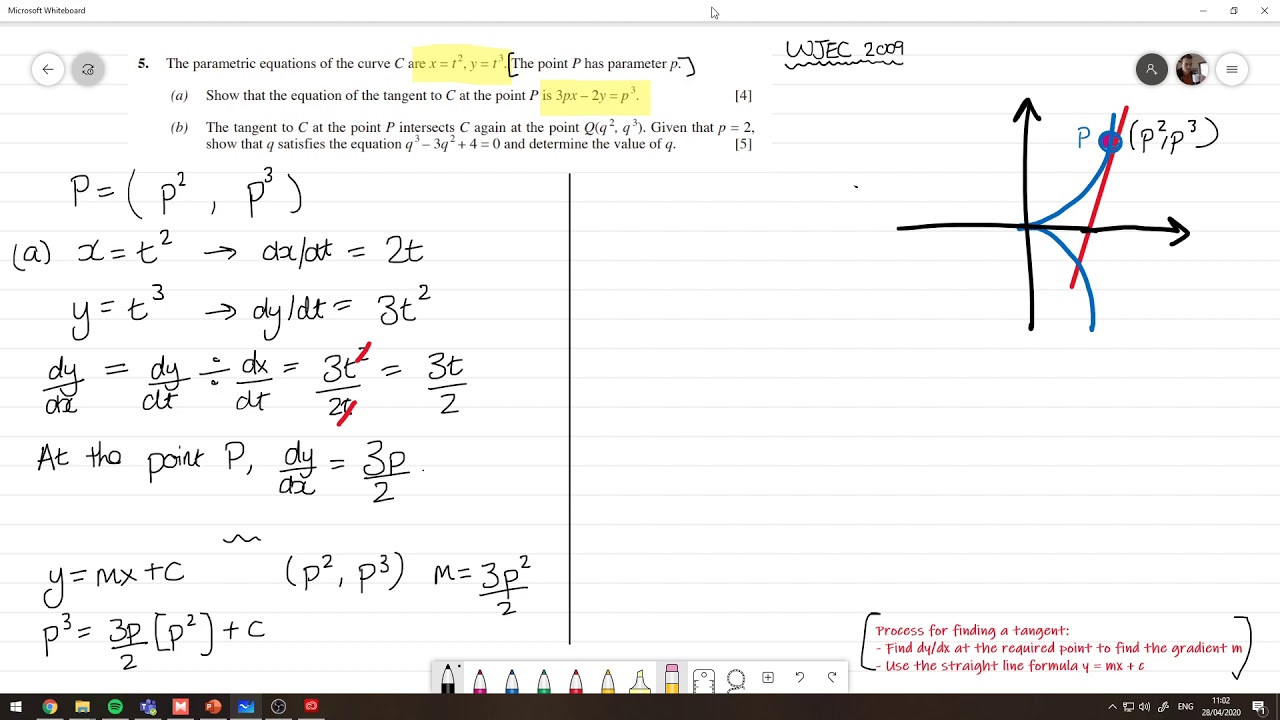 Microsoft Whiteboard
5. The parametric equations of the curve C are x = t², y = t³. [The point P has parameter p.]
(a) Show that the equation of the tangent to C at the point P is 3px – 2y = p³. [4]
(b) The tangent to C at the point P intersects C again at the point Q(q², q³). Given that p = 2,
show that q satisfies the equation q³ – 3q² + 4 = 0 and determine the value of q. [5]
WJEC 2009
P (p², p³)
P = (p², p³)
(a) x = t² → dx/dt = 2t
y = t³ → dy/dt = 3t²
dy/dx = dy/dt ÷ dx/dt = 3t²/2t = 3t/2
At the point P, dy/dx = 3p/2.
y = mx + c (p², p³) m = 3p²/2
p³ = 3p/2 [p²] + c
[Process for finding a tangent:
- Find dy/dx at the required point to find the gradient m
- Use the straight line formula y = mx + c]
ENG
11:02
28/04/2020